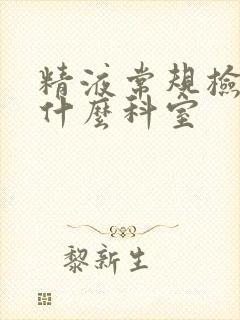 精液常規檢
什麼科室
黎新生